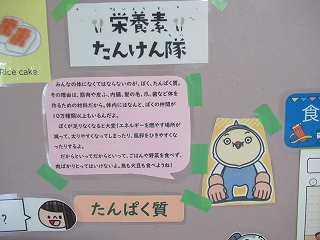 えいようそ
栄養素
たんけん隊
Rice cake
みんなの体になくてはならないのが、ぼく、たんぱく質。
その理由は、筋肉や皮ふ、内臓、髪の毛、爪、歯など体を
作るための材料だから。体内にはなんと、ぼくの仲間が
10万種類以上もいるんだよ。
ぼくが足りなくなると大変!エネルギーを燃やす場所が
減って、太りやすくなってしまったり、風邪をひきやすくな
ったりするよ。
だからといってだからといって、ごはんや野菜を食べず、
肉ばかりとってはいけないよ。魚も大豆も食べようね!
たんぱく質
食
?